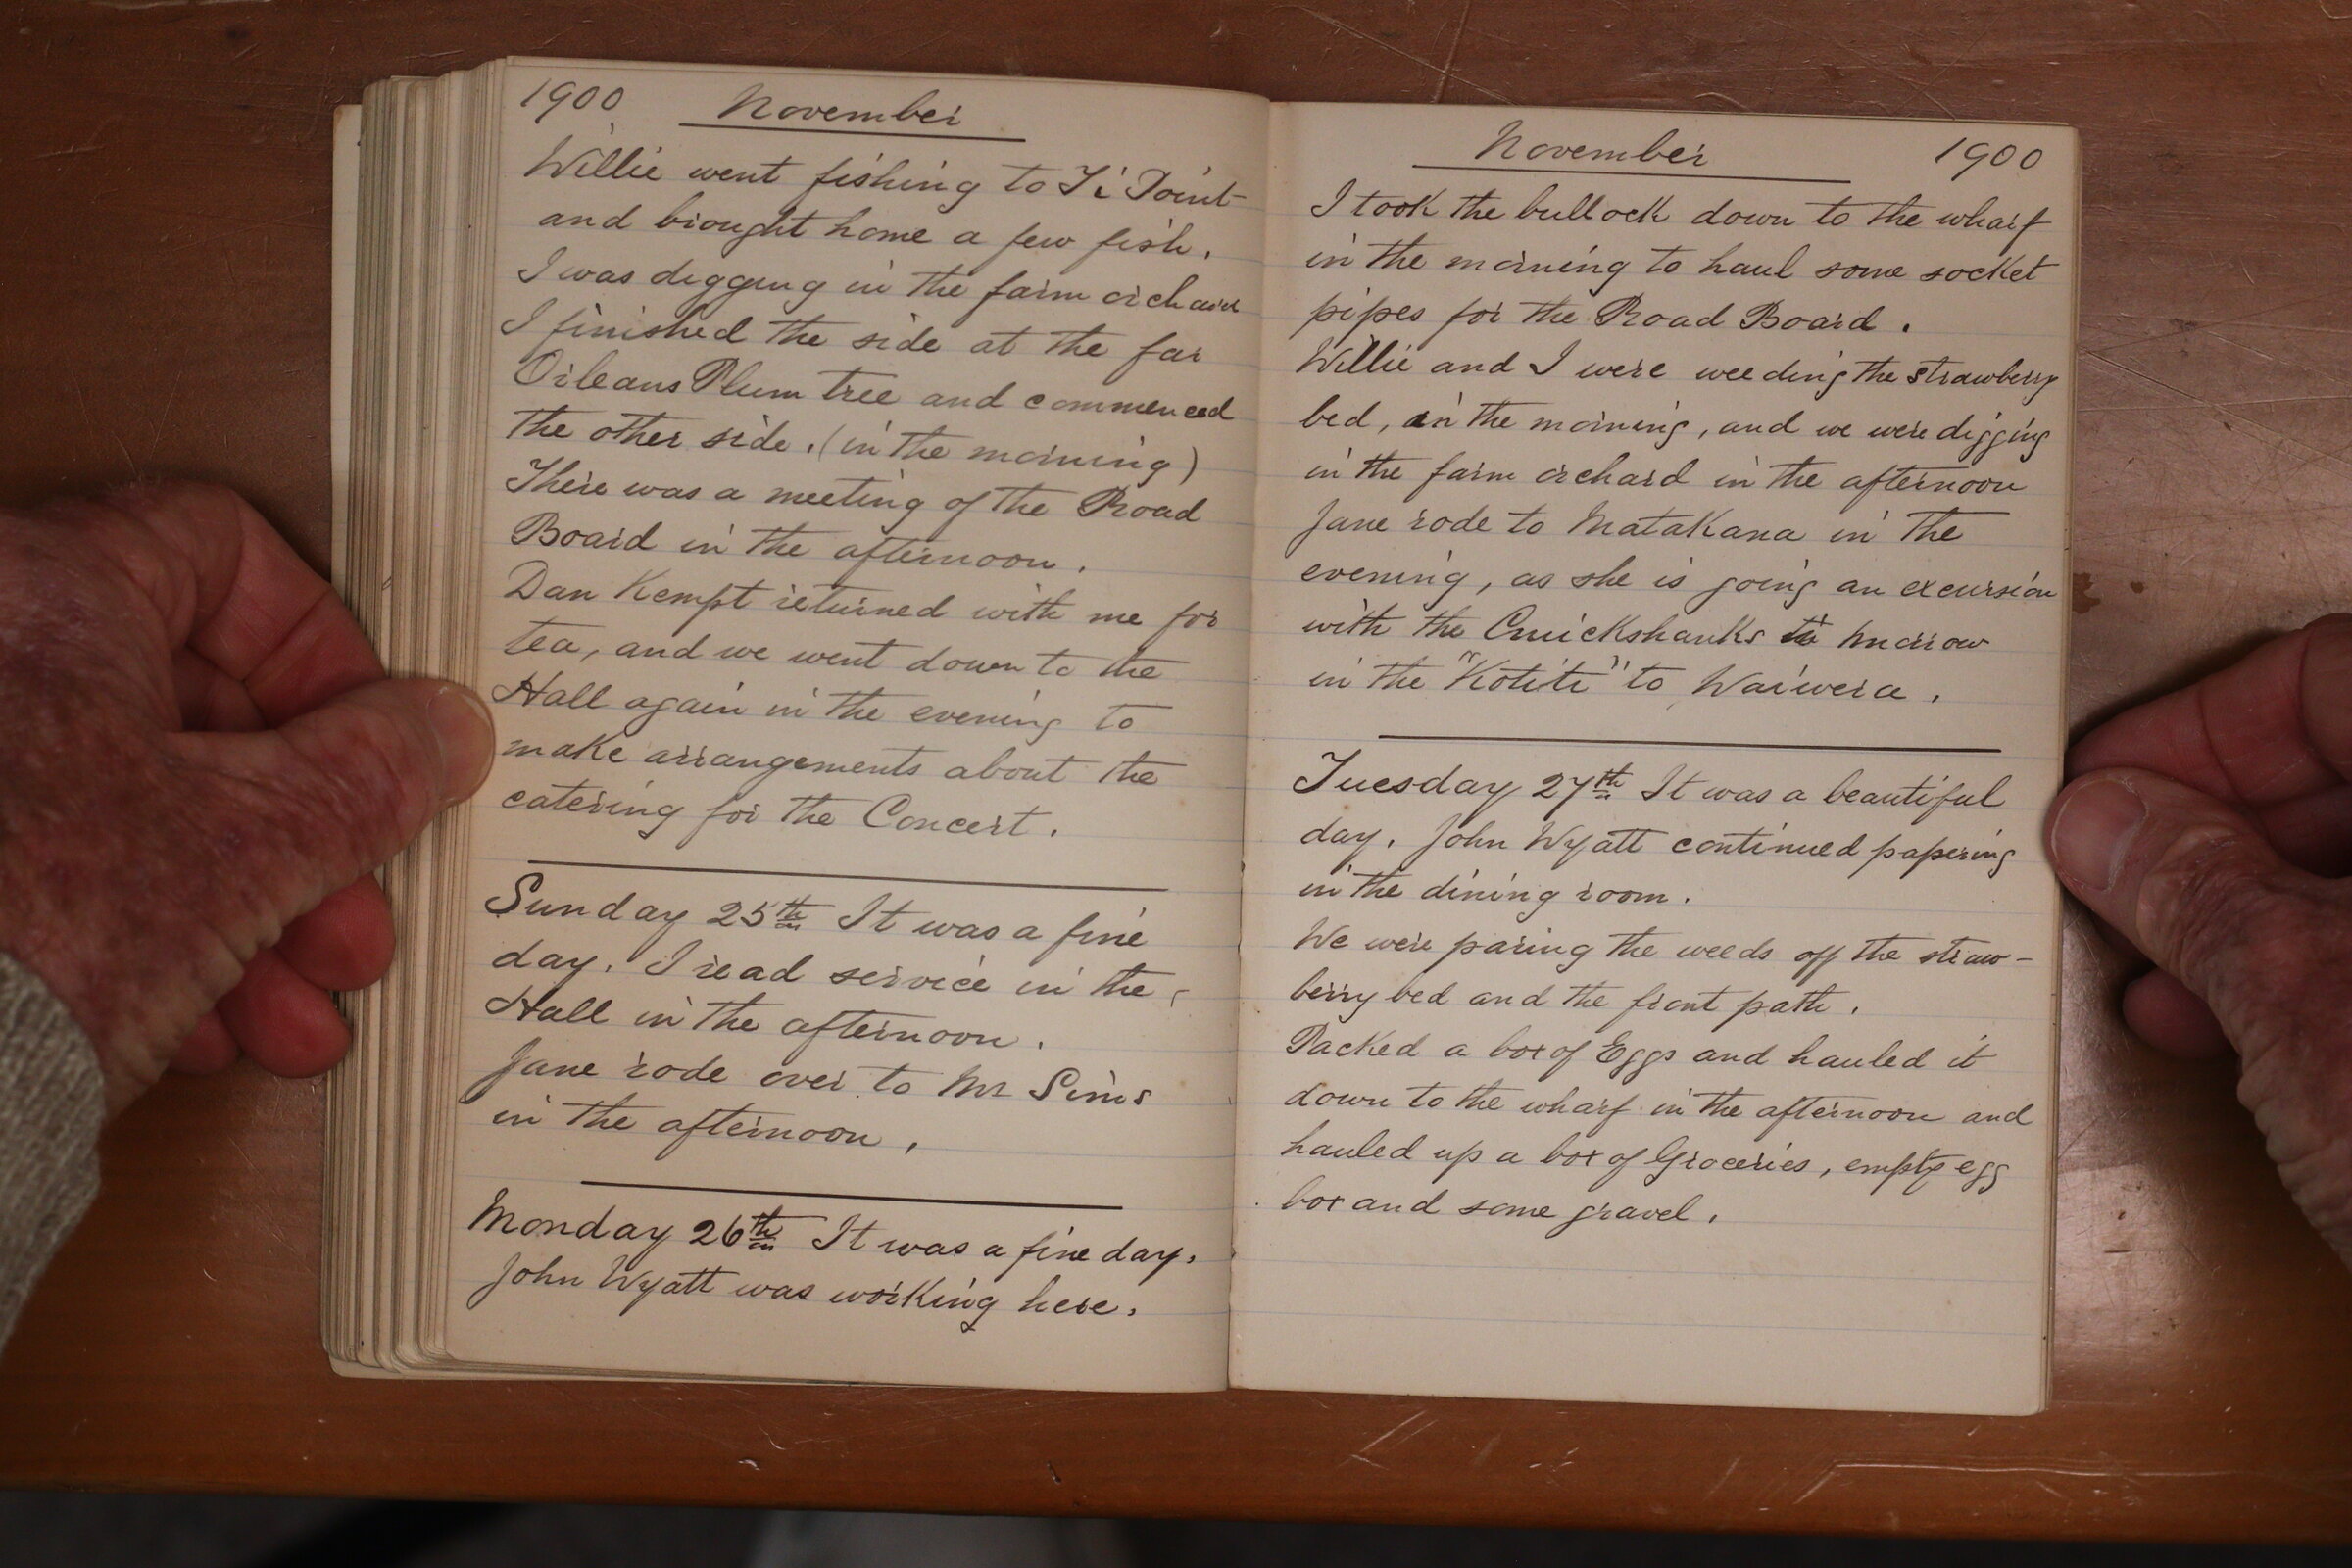 1900 November
Willie went fishing to Ti Point
and brought home a few fish.
I was digging in the farm orchard
I finished the side at the far
Orleans Plum tree and commenced
the other side. (in the morning)
There was a meeting of the Road
Board in the afternoon.
Dan Kempt returned with me for
tea, and we went down to the
Hall again in the evening to
make arrangements about the
catering for the Concert.
Sunday 25th It was a fine
day. I read service in the
Hall in the afternoon.
Jane rode over to Mr Sims
in the afternoon.
Monday 26th It was a fine day.
John Wyatt was working here.
November 1900
I took the bullock down to the wharf
in the morning to haul some socket
pipes for the Road Board.
Willie and I were weeding the strawberry
bed, in the morning, and we were digging
in the farm orchard in the afternoon
Jane rode to Matakana in the
evening, as she is going an excursion
with the Cruickshanks to morrow
in the "Kotiti" to Waiwera.
Tuesday 27th It was a beautiful
day. John Wyatt continued papering
in the dining room.
We were paring the weeds off the straw-
berry bed and the front path.
Packed a box of Eggs and hauled it
down to the wharf in the afternoon and
hauled up a box of Groceries, empty egg
box and some gravel.